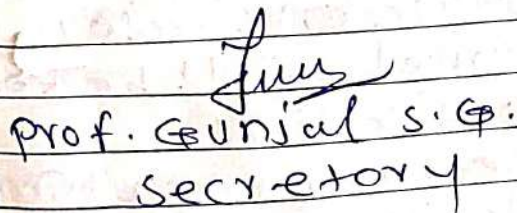 prof. Gunjal S. G.
secretory